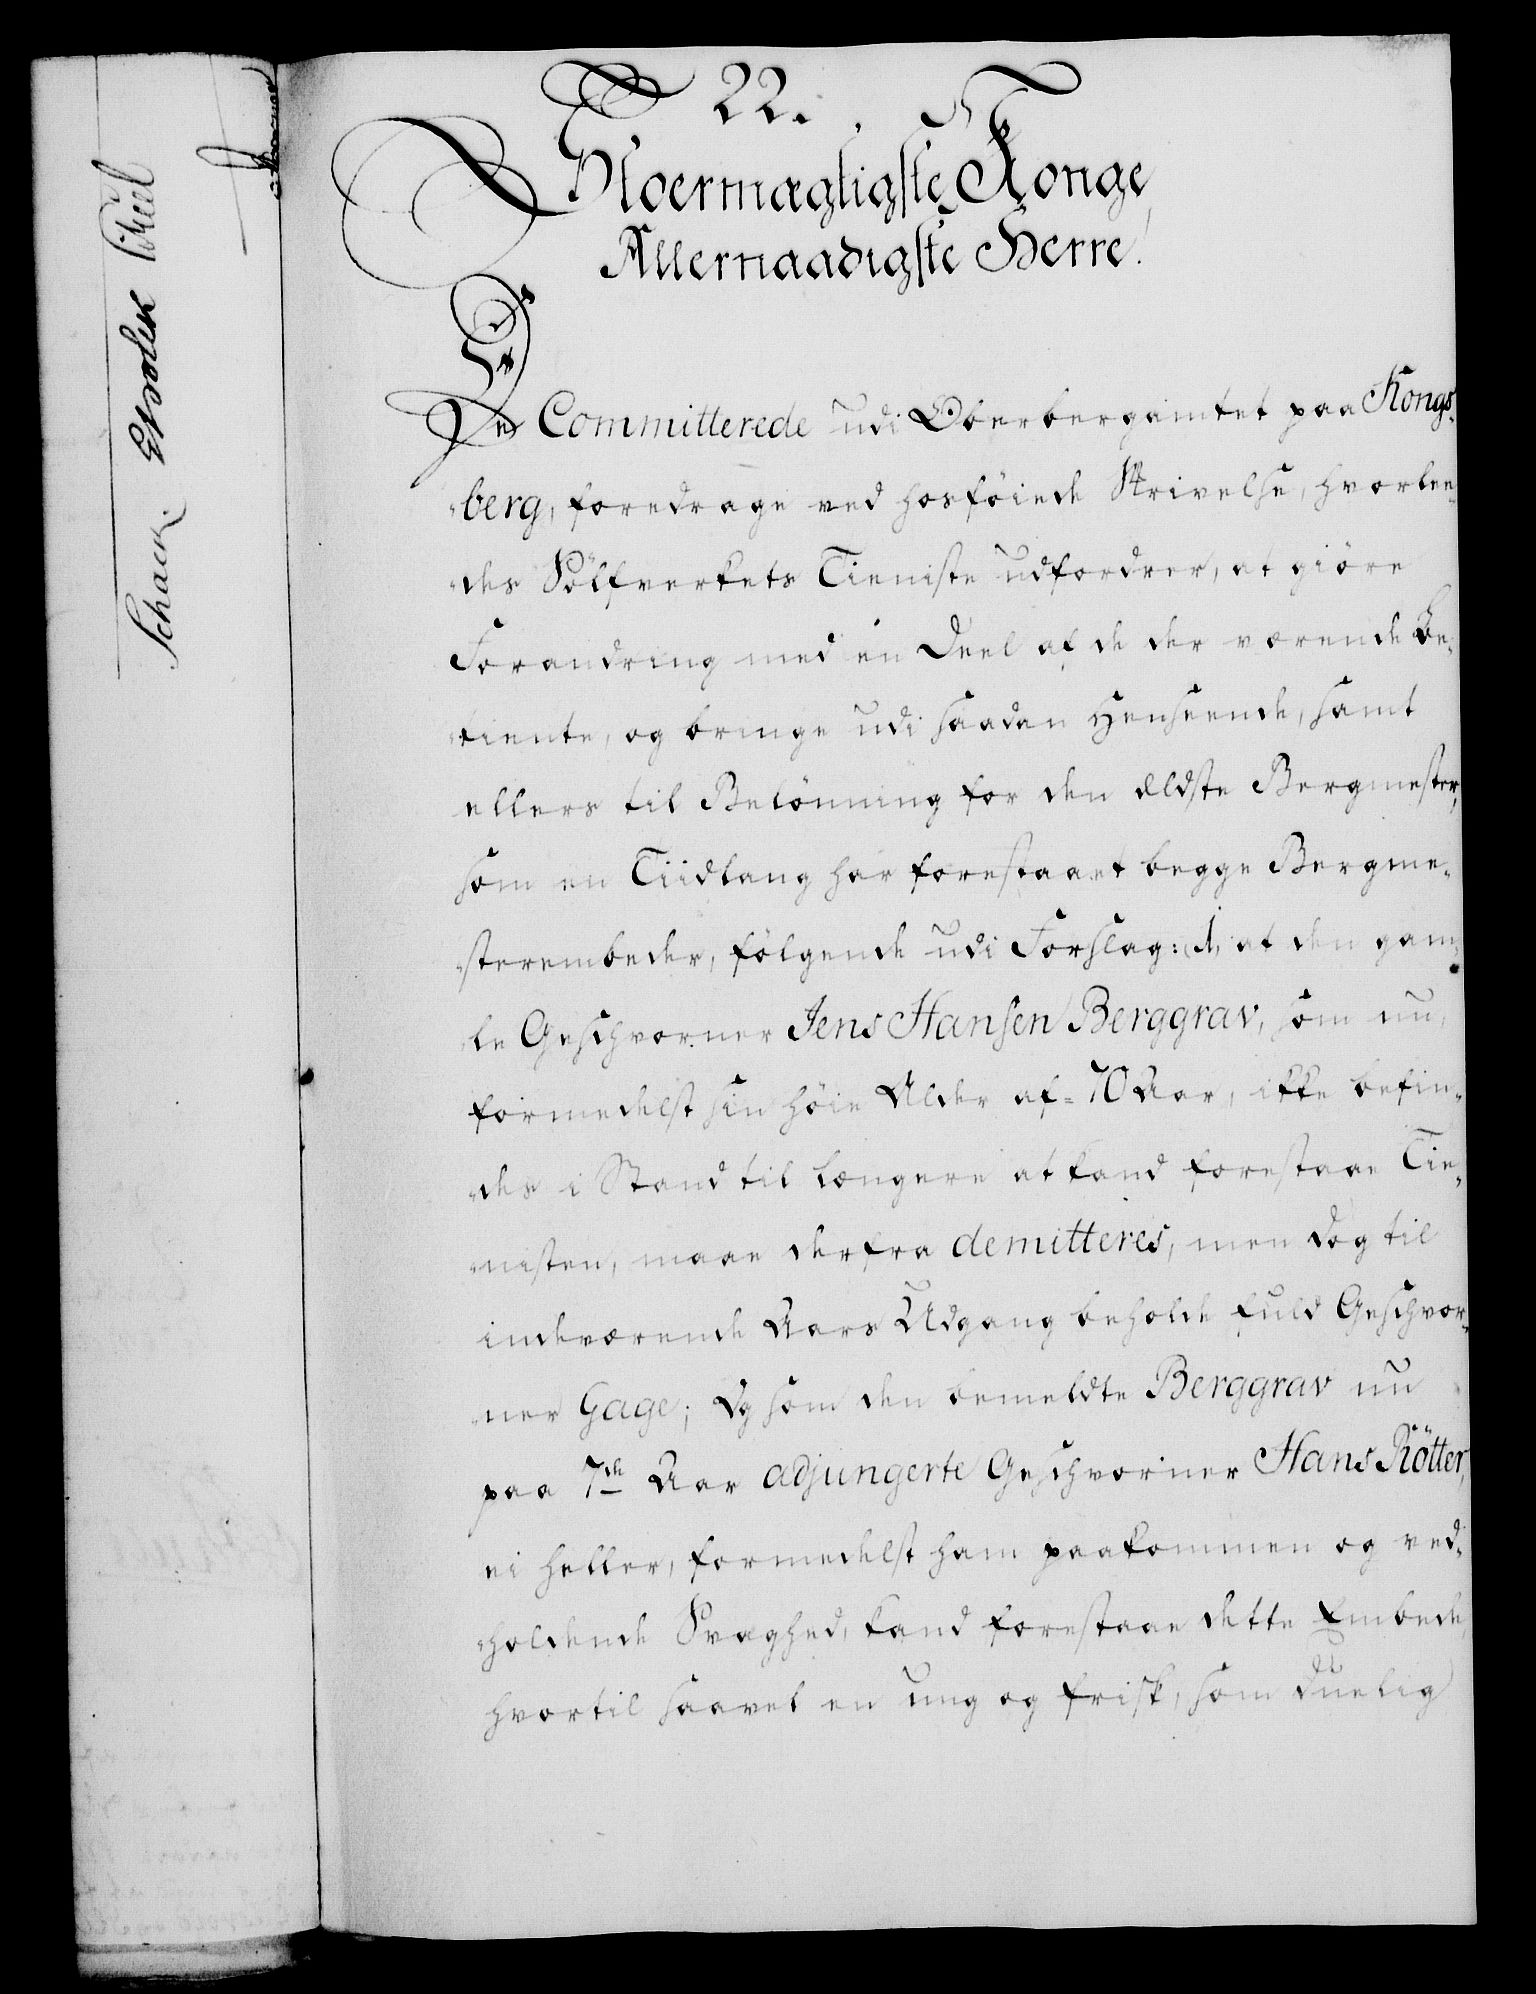 22.
Stoermægtigste Konge
Allernaadigste Herre!
De Committerede udi Oberbergamtet paa Kongs-
berg, foredrage ved hosföiede Skrivelse, hvorlee-
des Sölfverkets Tieniste udfordrer, at giöre
Forandring med en Deel af de der værende Be-
tiente, og bringe udi saadan Henseende, samt
ellers til Belönning for den ældste Bergmester,
som en Tiidlang har forestaaet begge Bergme-
sterembeder, fölgende udi Forslag: 1, at den gam-
le Geschvorner Jens Hansen Berggrav, som nu,
formedelst sin höie Alder af 70 Aar, ikke befin-
des i Stand til længere at kand forestaae Tie-
nisten, maae derfra demitteres, men dog til
indeværende Aars Udgang beholde fuld Geschvor-
ner Gage; Og som den bemeldte Berggrav nu
paa 7de Aar adjungerte Geschvorner Hans Rötter,
ei heller, formedelst ham paakommen og ved-
holdende Svaghed, kand forestaae dette Embede,
hvortil saavel en ung og frisk, som duelig
Schack